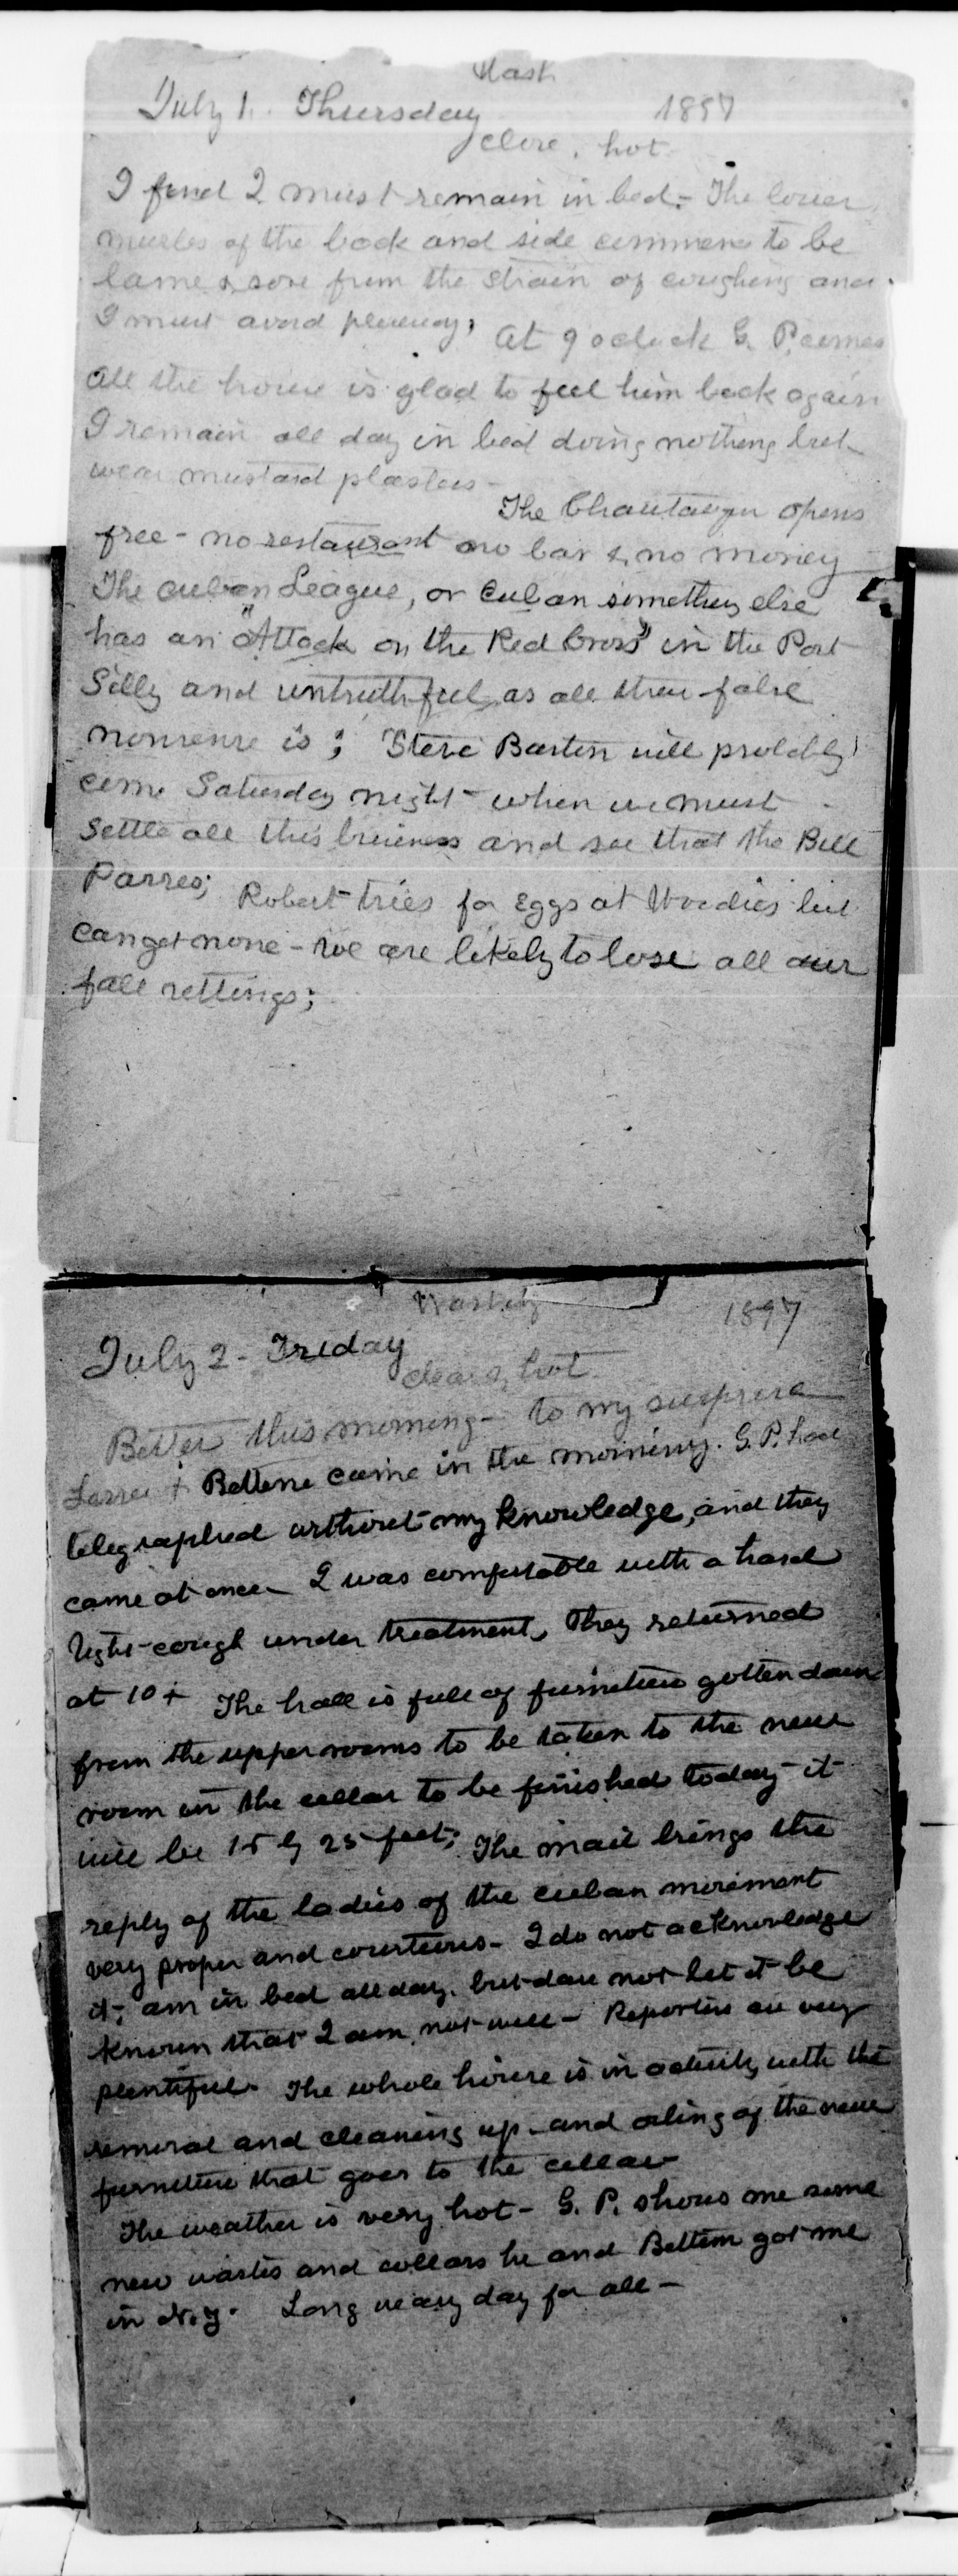 Wash
July 1. Thursday 1897
clear, hot.
I find I must remain in bed - The lower
muscles of the back and side commence to be
lame & sore from the strain of coughing and
I must avoid pleurisy, At 9 oclock G. P. comes
all the house is glad to feel him back again
I remain all day in bed doing nothing but
wear mustard plasters -
The Chautauqu opens
free - no restaurant no bar & no money
The Cuban League, or Cuban something else
has an "Attack on the Red Cross" in the Post
Silly and untruthful as all their false
nonsense is; Steve Barton will probably
come Saturday night - when we must
settle all this business and see that the Bill
Passes; Robert tries for Eggs at Woodies but
can get none - we are likely to lose all our
fall settings;
Wash 1897
July 2 - Friday
clear & hot
Better this morning - to my surprise
& Bettene came in the morning. G. P. had
telegraphed without my knowledge, and they
came at once - I was comfortable with a hard
tight cough under treatment, They returned
at 10 + The hall is full of furniture gotten down
from the upper rooms to be taken to the new
room in the cellar to be finished today - it
will be 15 by 25 feet; The mail brings the
reply of the ladies of the cuban movement
very proper and courteous - I do not acknowledge
it; am in bed all day, but dare not let it be
known that I am not well - Reporters are very
plentiful - The whole house is in activity with the
removal and cleaning up - and oiling of the new
furniture that goes to the cellar
The weather is very hot - G. P. shows me some
new waists and collars he and Bettem got me
in N.y. Long weary day for all -